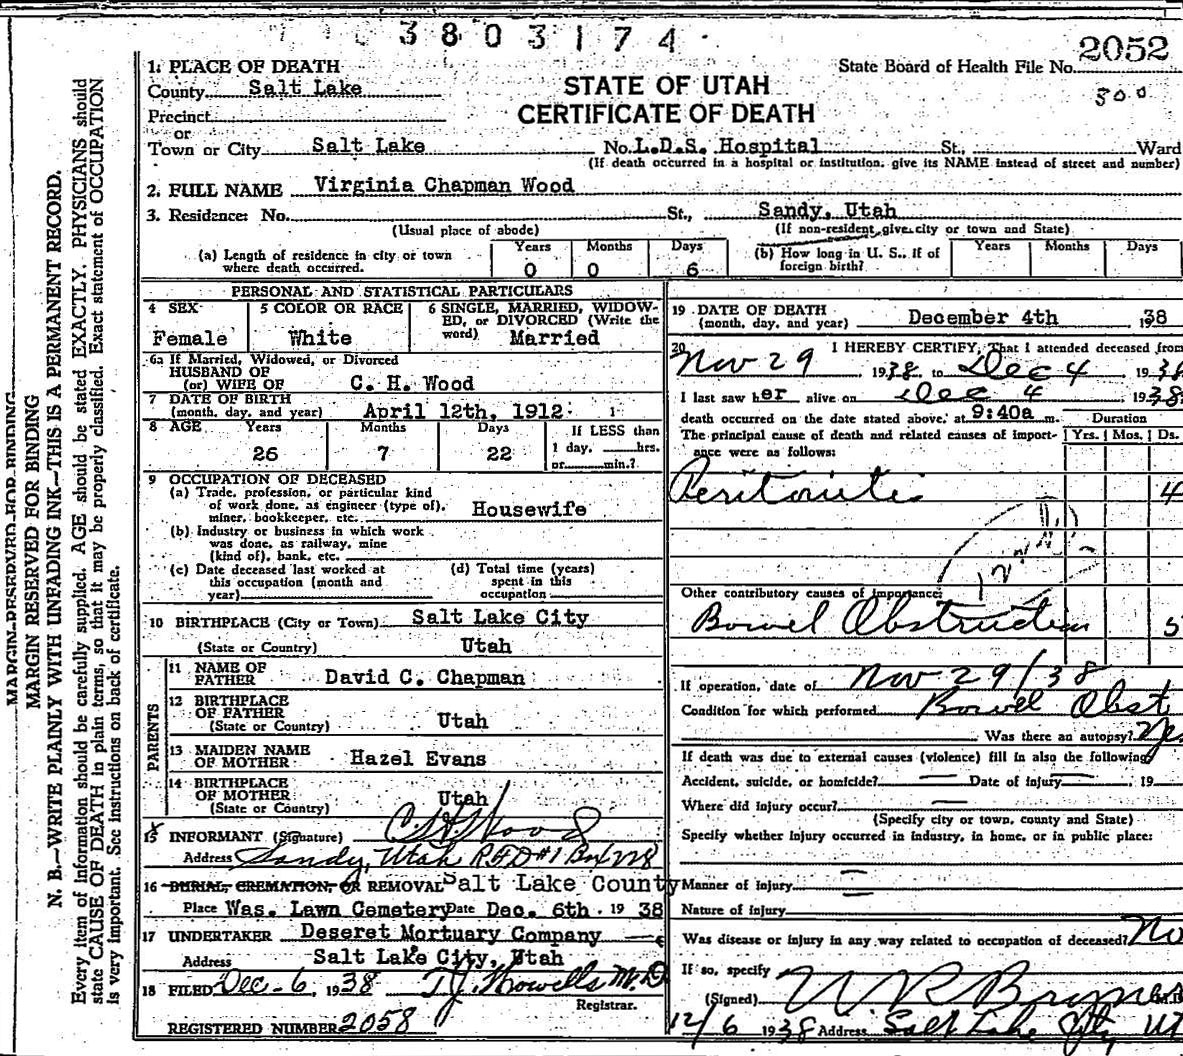 3803174
2052
State Board of Health File No.
300
1. PLACE OF DEATH
County Salt Lake
STATE OF UTAH
CERTIFICATE OF DEATH
Precinct
or
Town or City Salt Lake No. L.D.S. Hospital St., Ward
(If death occurred in a hospital or institution, give its NAME instead of street and number)
2. FULL NAME Virginia Chapman Wood
3. Residence: No. St., Sandy, Utah
(Usual place of abode) (If non-resident give city or town and State)
(a) Length of residence in city or town where death occurred. Years 0 Months 0 Days 6
(b) How long in U. S., if of foreign birth? Years Months Days
PERSONAL AND STATISTICAL PARTICULARS
4 SEX Female
5 COLOR OR RACE White
6 SINGLE, MARRIED, WIDOWED, or DIVORCED (Write the word) Married
6a If Married, Widowed, or Divorced
HUSBAND OF
(or) WIFE OF C. H. Wood
7 DATE OF BIRTH
(month, day, and year) April 12th, 1912
8 AGE Years 26 Months 7 Days 22 If LESS than 1 day, hrs. or min.?
9 OCCUPATION OF DECEASED
(a) Trade, profession, or particular kind
of work done, as engineer (type of),
miner, bookkeeper, etc. Housewife
(b) Industry or business in which work
was done, as railway, mine
(kind of), bank, etc.
(c) Date deceased last worked at
this occupation (month and
year)
(d) Total time (years)
spent in this
occupation
10 BIRTHPLACE (City or Town) Salt Lake City
(State or Country) Utah
PARENTS
11 NAME OF
FATHER David C. Chapman
12 BIRTHPLACE
OF FATHER
(State or Country) Utah
13 MAIDEN NAME
OF MOTHER Hazel Evans
14 BIRTHPLACE
OF MOTHER
(State or Country) Utah
15 INFORMANT (Signature) C. H. Wood
Address Sandy, Utah R.F.D #1 Box 228
16 BURIAL, CREMATION, OR REMOVAL Salt Lake County
Place Was. Lawn Cemetery Date Dec. 6th. 1938
17 UNDERTAKER Deseret Mortuary Company
Address Salt Lake City, Utah
18 FILED Dec. 6, 1938 T.J. Howells M.D
Registrar.
REGISTERED NUMBER 2058
19 DATE OF DEATH
(month, day, and year) December 4th 1938
20 I HEREBY CERTIFY, That I attended deceased from
Nov 29 1938 to Dec 4 1938
I last saw her alive on Dec 4 1938
death occurred on the date stated above, at 9:40a m. Duration
The principal cause of death and related causes of importance were as follows: Yrs. Mos. Ds.
Peritonitis 4
Other contributory causes of importance:
Bowel Obstruction 5
If operation, date of Nov 29/38
Condition for which performed Bowel Obst
Was there an autopsy? Yes
If death was due to external causes (violence) fill in also the following:
Accident, suicide, or homicide? — Date of injury — , 19
Where did injury occur? —
(Specify city or town, county and State)
Specify whether injury occurred in industry, in home, or in public place:
Manner of Injury
Nature of injury
Was disease or injury in any way related to occupation of deceased? No
If so, specify
(Signed) M.D.
12/6 1938 Address Salt Lake City UT
MARGIN RESERVED FOR BINDING
MARGIN RESERVED FOR BINDING
N. B.—WRITE PLAINLY WITH UNFADING INK—THIS IS A PERMANENT RECORD.
Every item of information should be carefully supplied. AGE should be stated EXACTLY. PHYSICIANS should
state CAUSE OF DEATH in plain terms, so that it may be properly classified. Exact statement of OCCUPATION
is very important. See instructions on back of certificate.